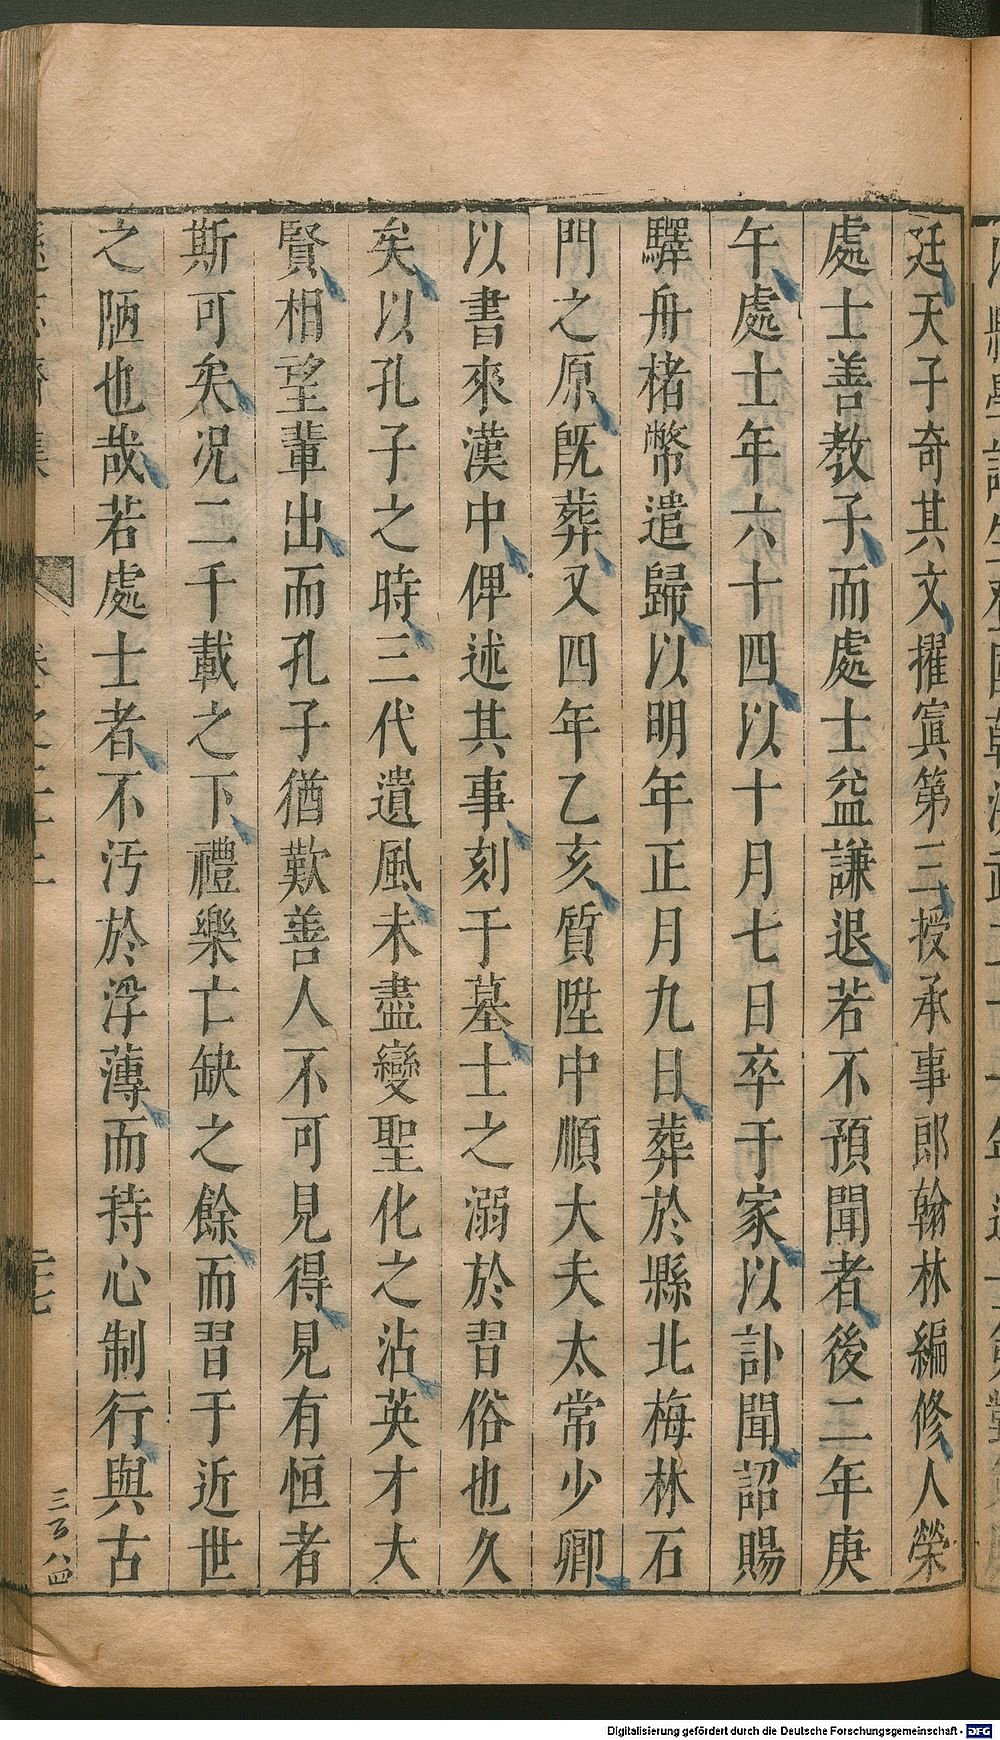 廷天子奇其文擢寘第三授承事郎翰林編修人榮
處士善教子而處士益謙退若不預聞者後二年庚
午處士年六十四以十月七日卒于家以訃聞詔賜
驛舟楮幣遣歸以明年正月九日葬於縣北梅林石
門之原既葬又四年乙亥質陞中順大夫太常少卿
以書來漢中俾述其事刻于墓士之溺於習俗也久
矣以孔子之時三代遺風未盡變聖化之沾英才大
賢相望輩出而孔子猶歎善人不可見得見有恒者
斯可矣況二千載之下禮樂亡缺之餘而習于近世
之陋也哉若處士者不汚於浮薄而持心制行與古
卷之二十二
二十七
三百八四
Digitalisierung gefördert durch die Deutsche Forschungsgemeinschaft - DFG